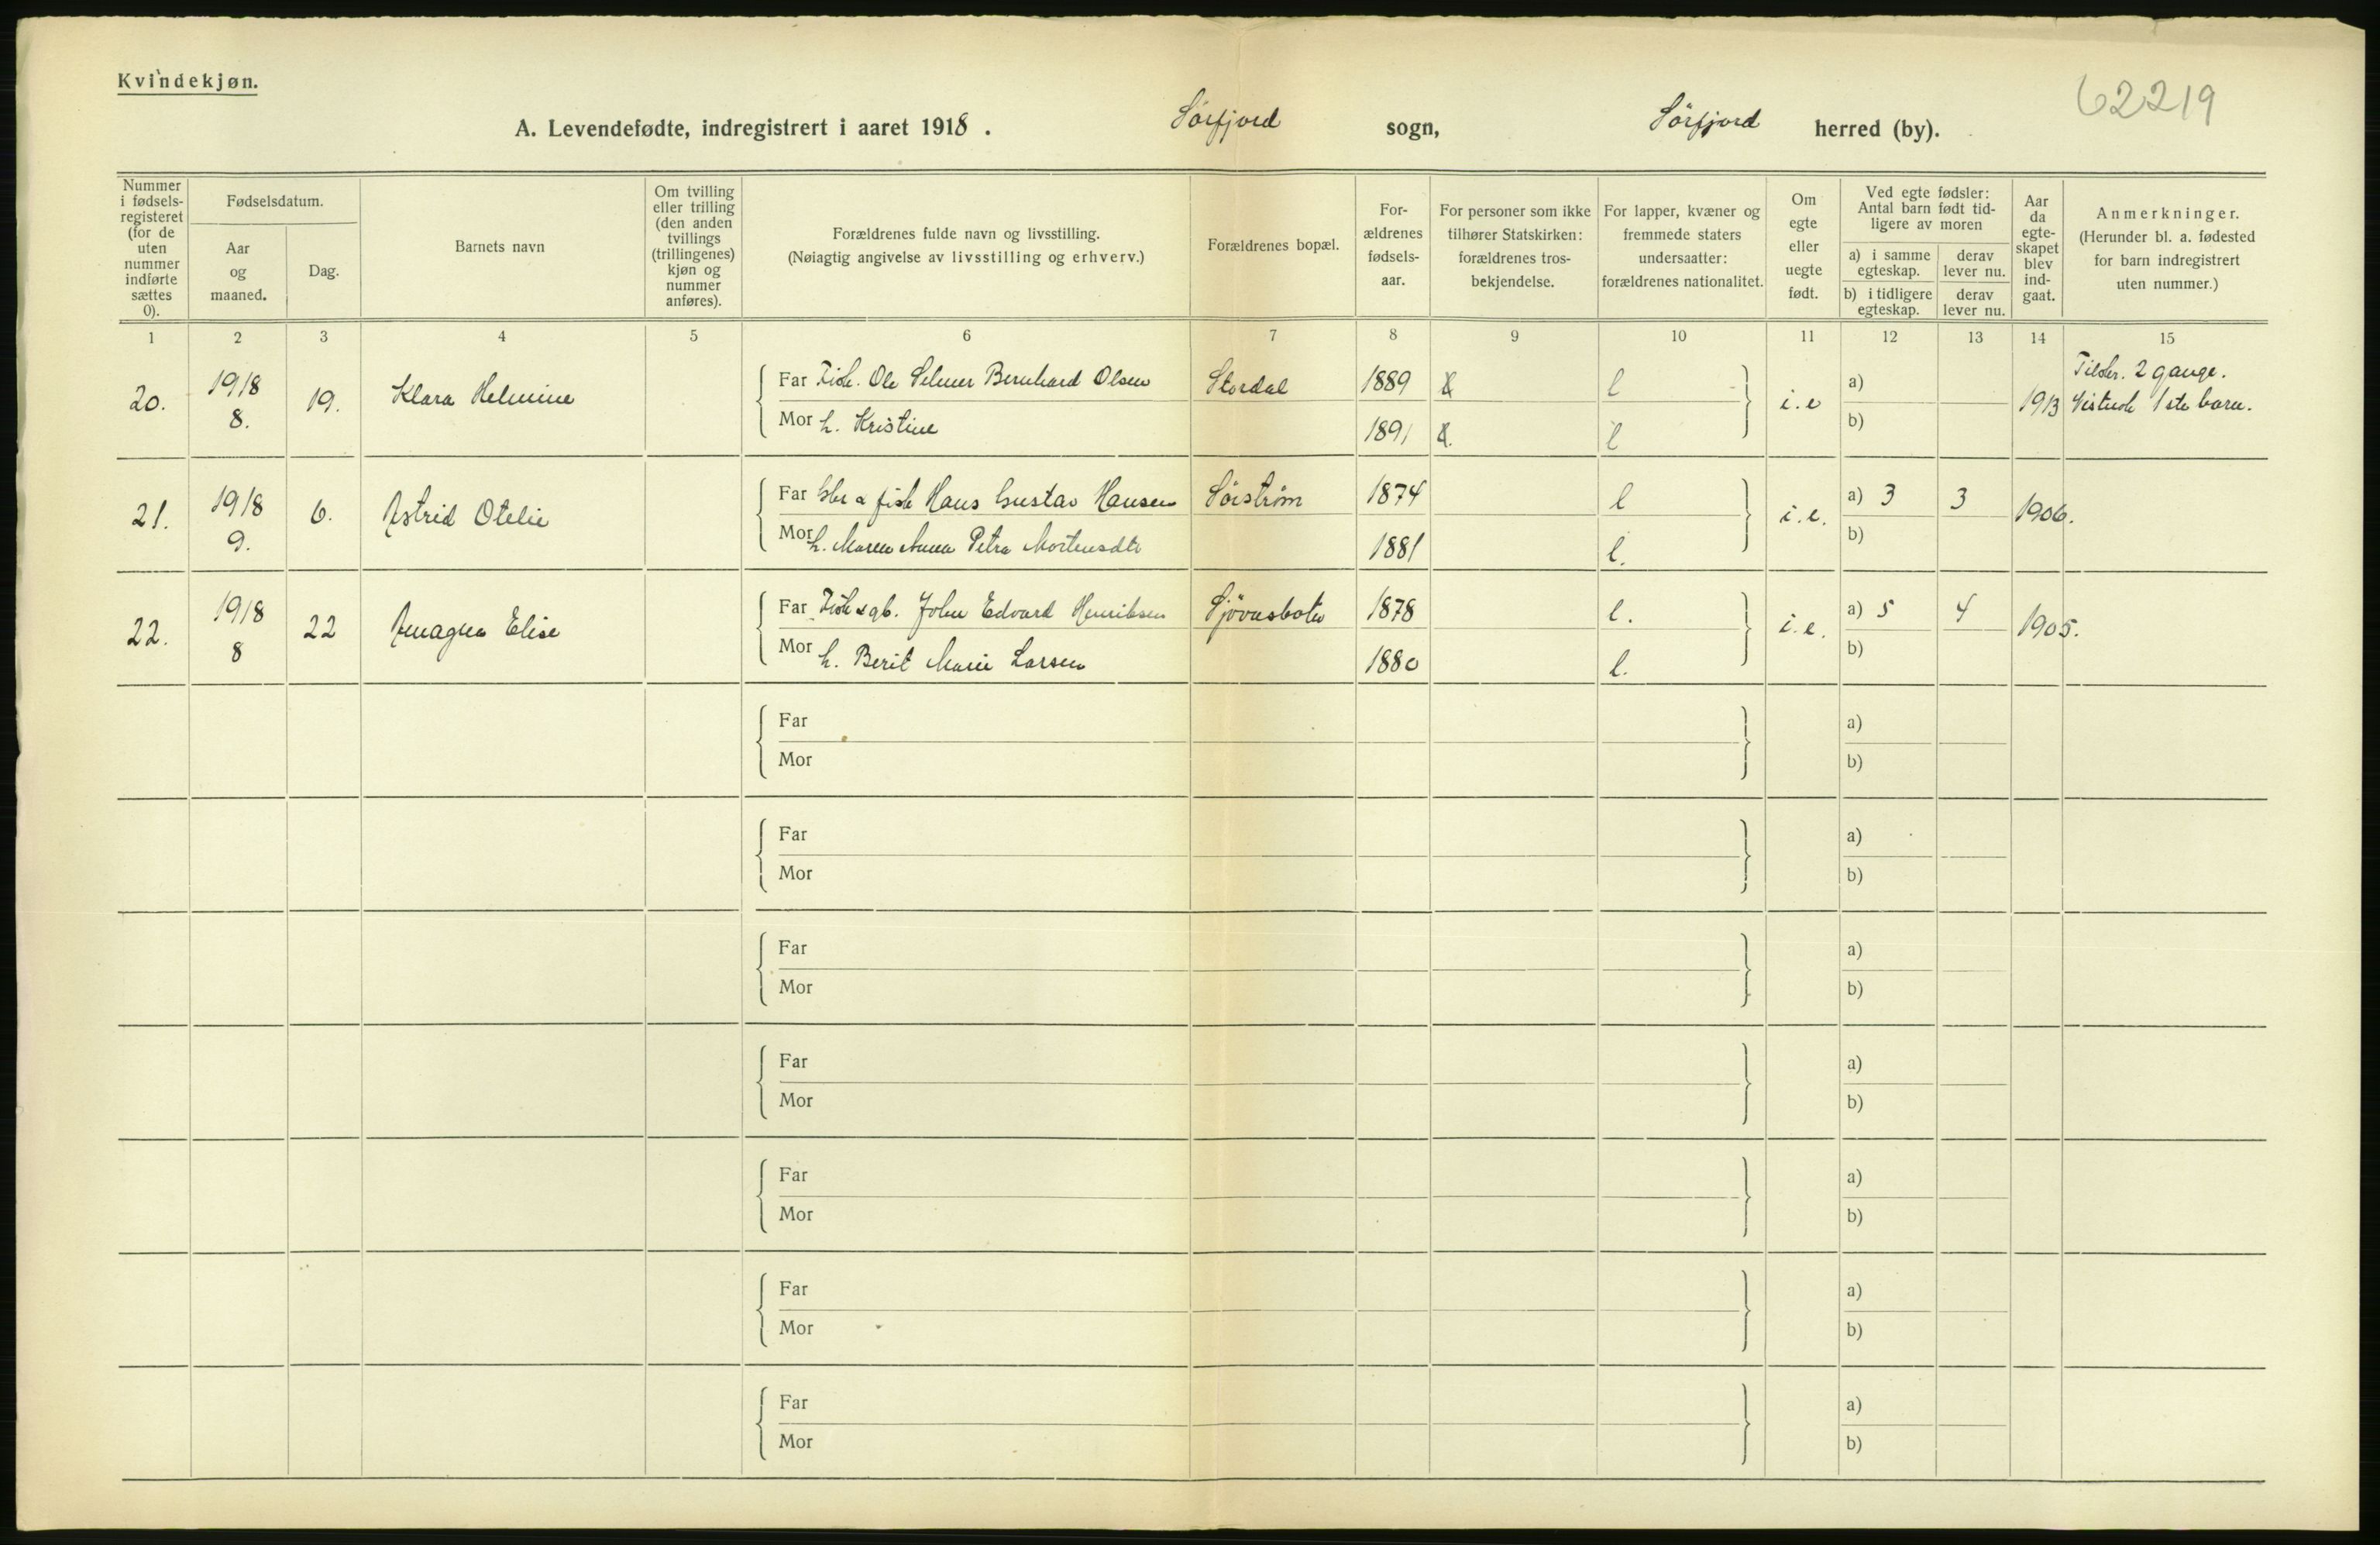 Kvindekjøn.
62219
A. Levendefødte, indregistrert i aaret 1918. Sörfjord sogn, Sörfjord herred (by).
Nummer i fødsels-registeret (for de uten nummer indførte sættes 0).
Fødselsdatum.
Aar og maaned.
Dag.
Barnets navn
Om tvilling eller trilling (den anden tvillings (trillingenes) kjøn og nummer anføres).
Forældrenes fulde navn og livsstilling.
(Nøiagtig angivelse av livsstilling og erhverv.)
Forældrenes bopæl.
For-ældrenes fødsels-aar.
For personer som ikke tilhører Statskirken: forældrenes tros-bekjendelse.
For lapper, kvæner og fremmede staters undersaatter: forældrenes nationalitet.
Om egte eller uegte født.
Ved egte fødsler: Antal barn født tid-ligere av moren
a) i samme egteskap.
derav lever nu.
b) i tidligere egteskap.
derav lever nu.
Aar da egte-skapet blev ind-gaat.
Anmerkninger.
(Herunder bl. a. fødested for barn indregistrert uten nummer.)
1 2 3 4 5 6 7 8 9 10 11 12 13 14 15
20. 1918 8. 19. Klara Helmine
Far Fisk. Ole Selmer Bernhard Olsen Stordal 1889 l
Mor h. Kristine 1891 l
i.e a) b) 1913
2 gange.
1ste barn.
21. 1918 9. 6. Astrid Otelie
Far gbr & fisk Hans Gustav Hansen Sörström 1874 l
Mor h. Maren Anna Petra Mortensdtr 1881 l.
i.e. a) 3 3 b) 1906.
22. 1918 8 22 Elise
Far Fisk & gb. John Edvard Henriksen 1878 l.
Mor h. Berit Marie Larsen 1880 l.
i.e. a) 5 4 b) 1905.
Far a)
Mor b)
Far a)
Mor b)
Far a)
Mor b)
Far a)
Mor b)
Far a)
Mor b)
Far a)
Mor b)
Far a)
Mor b)